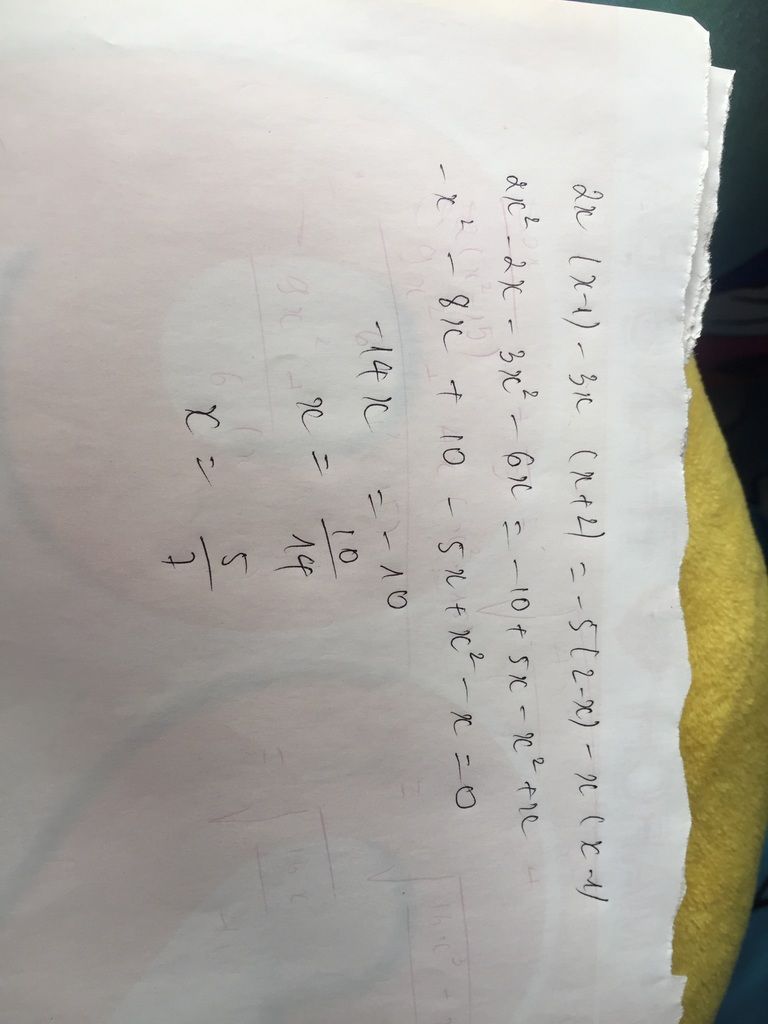 2x (x-1) - 3x (x+2) = -5(2-x) - x (x-1)
2x² - 2x - 3x² - 6x = -10 + 5x - x² + x
-x² - 8x + 10 - 5x + x² - x = 0
-14x = -10
x = 10/14
x = 5/7